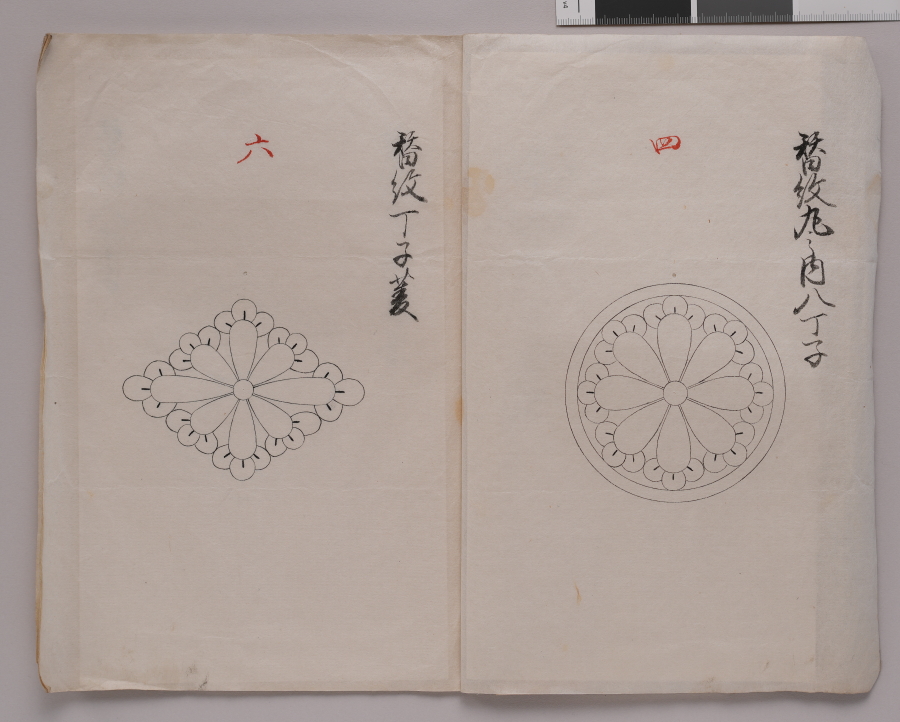 替紋丸ノ内八丁子
四
替紋丁子菱
六